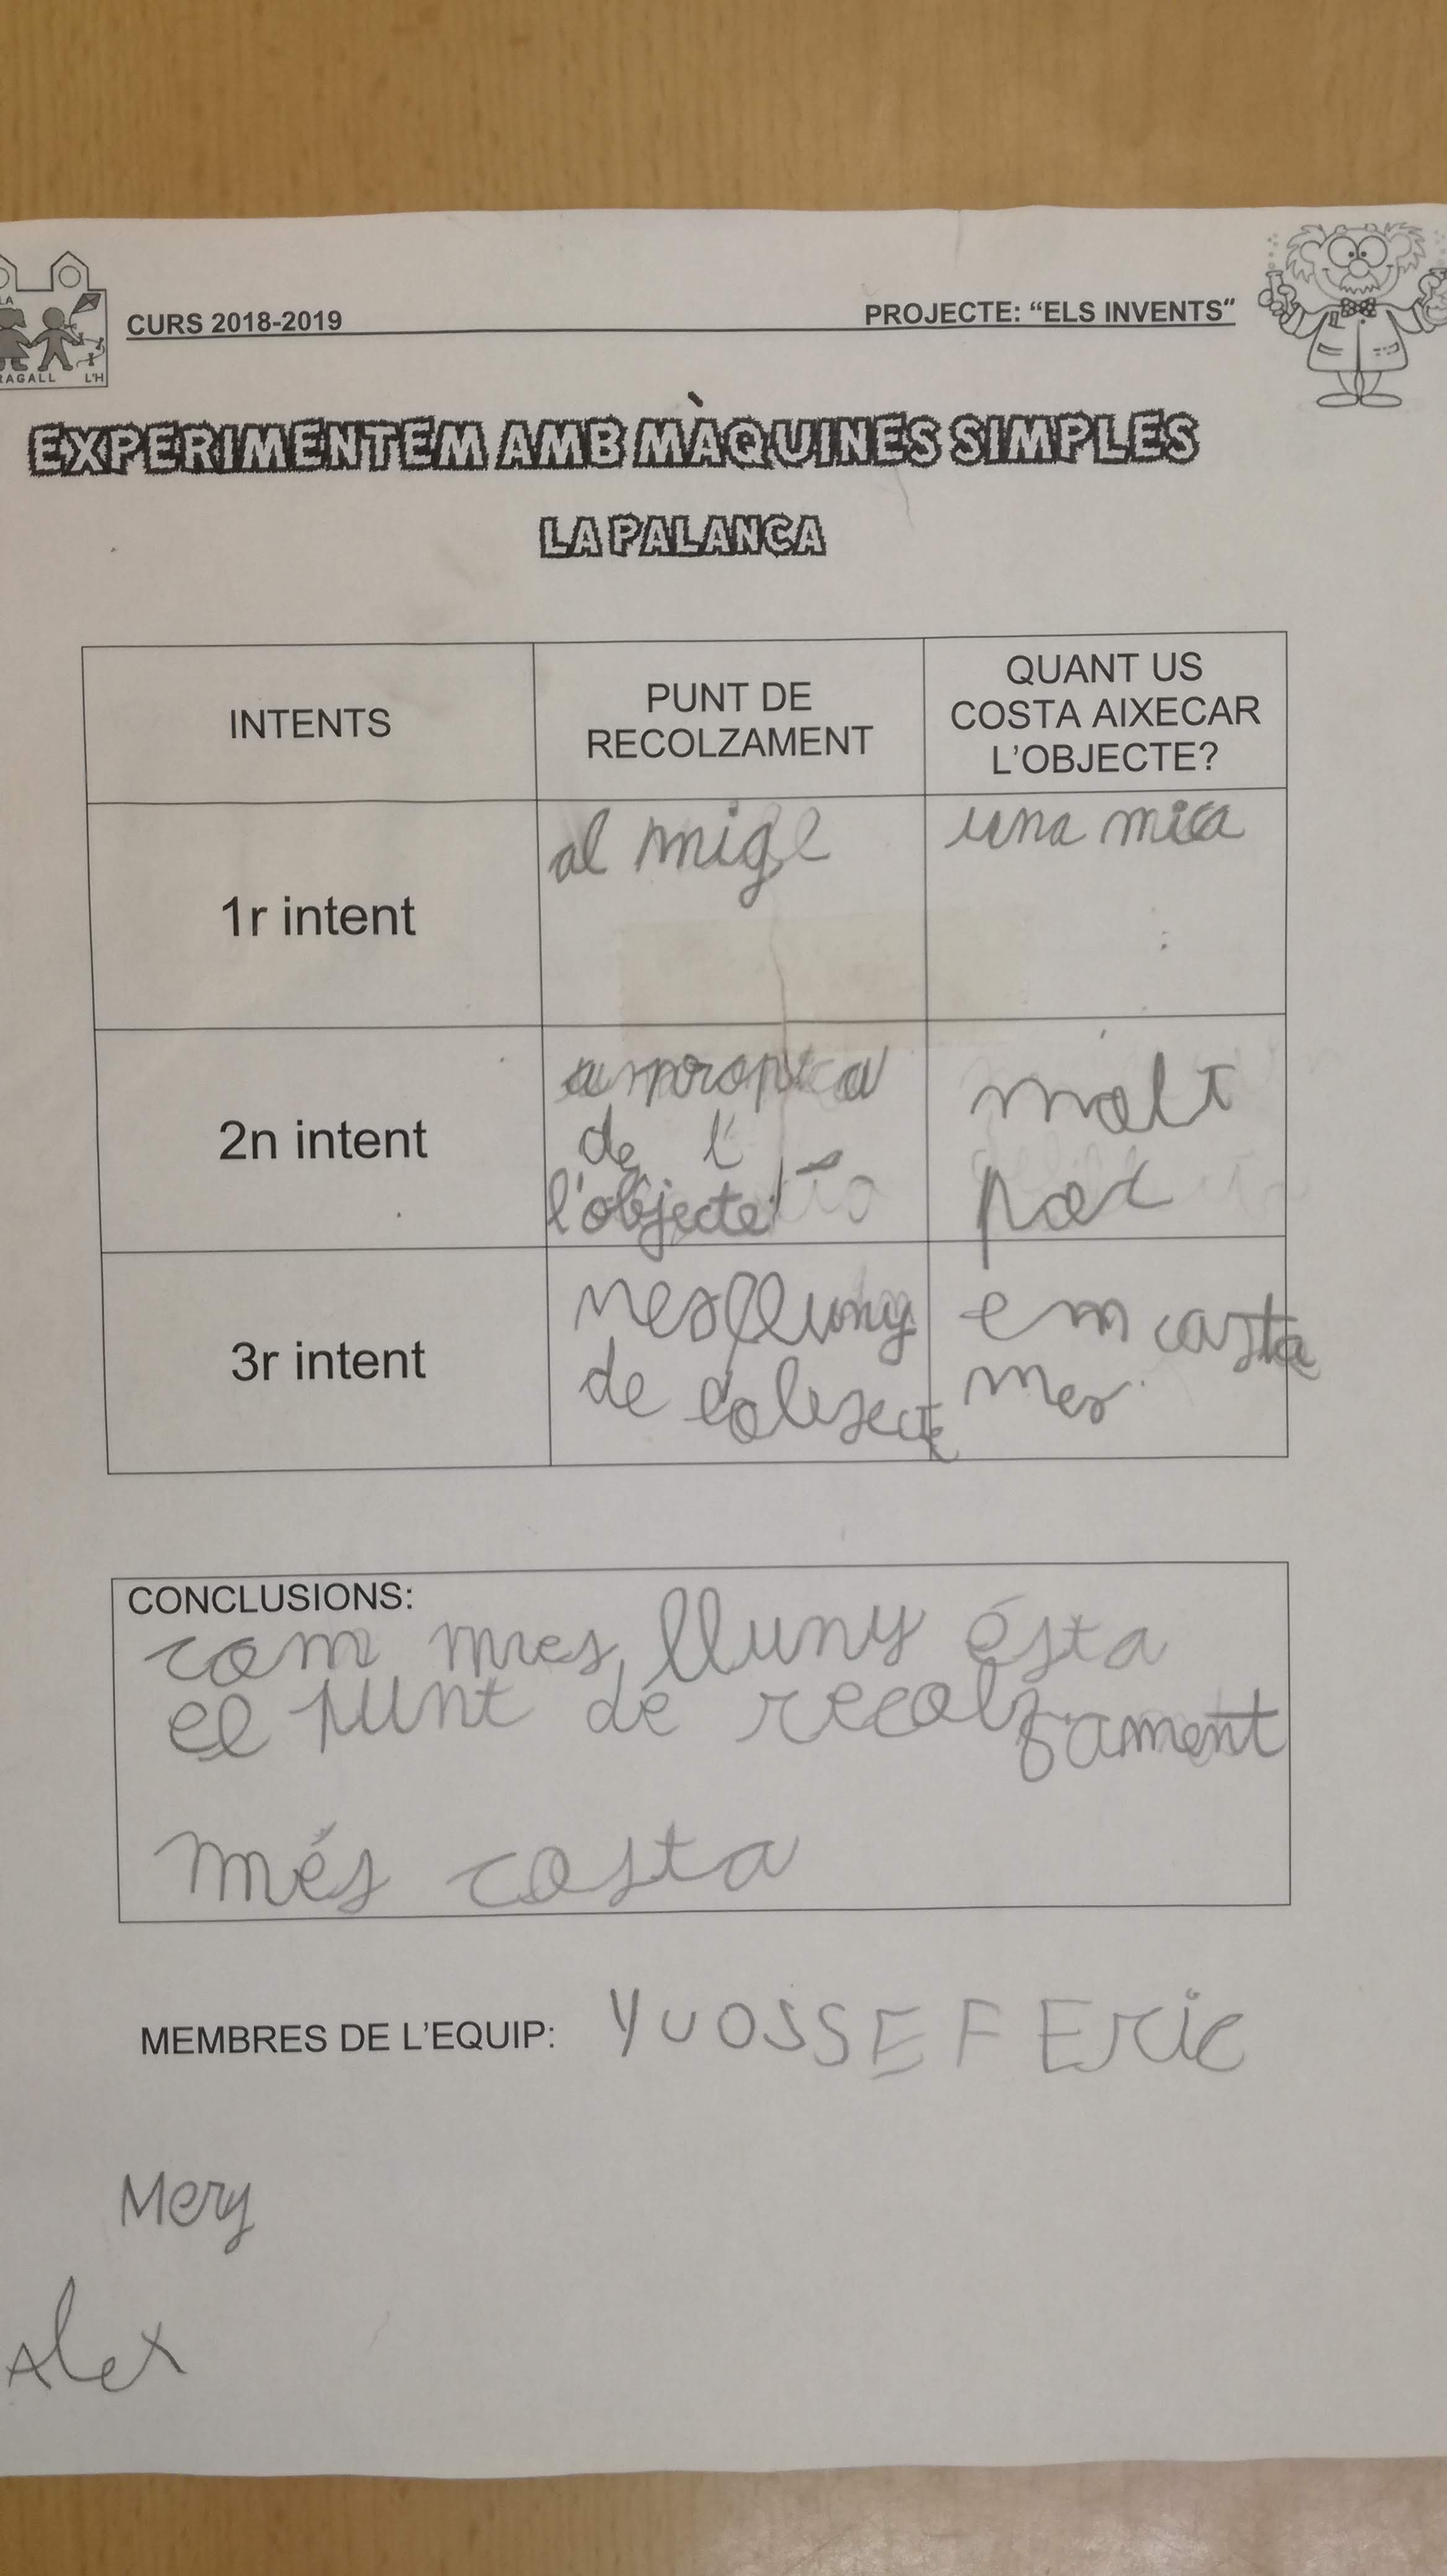 LA
RAGALL L'H
CURS 2018-2019
PROJECTE: “ELS INVENTS”
EXPERIMENTEM AMB MÀQUINES SIMPLES
LA PALANCA
INTENTS
PUNT DE
RECOLZAMENT
QUANT US
COSTA AIXECAR
L'OBJECTE?
1r intent
al mige
una mica
2n intent
de l'
l'objecte
molt
poc
3r intent
mes lluny
de
em costa
mes.
CONCLUSIONS:
com mes lluny ésta
el punt de recolzament
més costa
MEMBRES DE L'EQUIP: YUOSSEF Eric
Mery
Alex